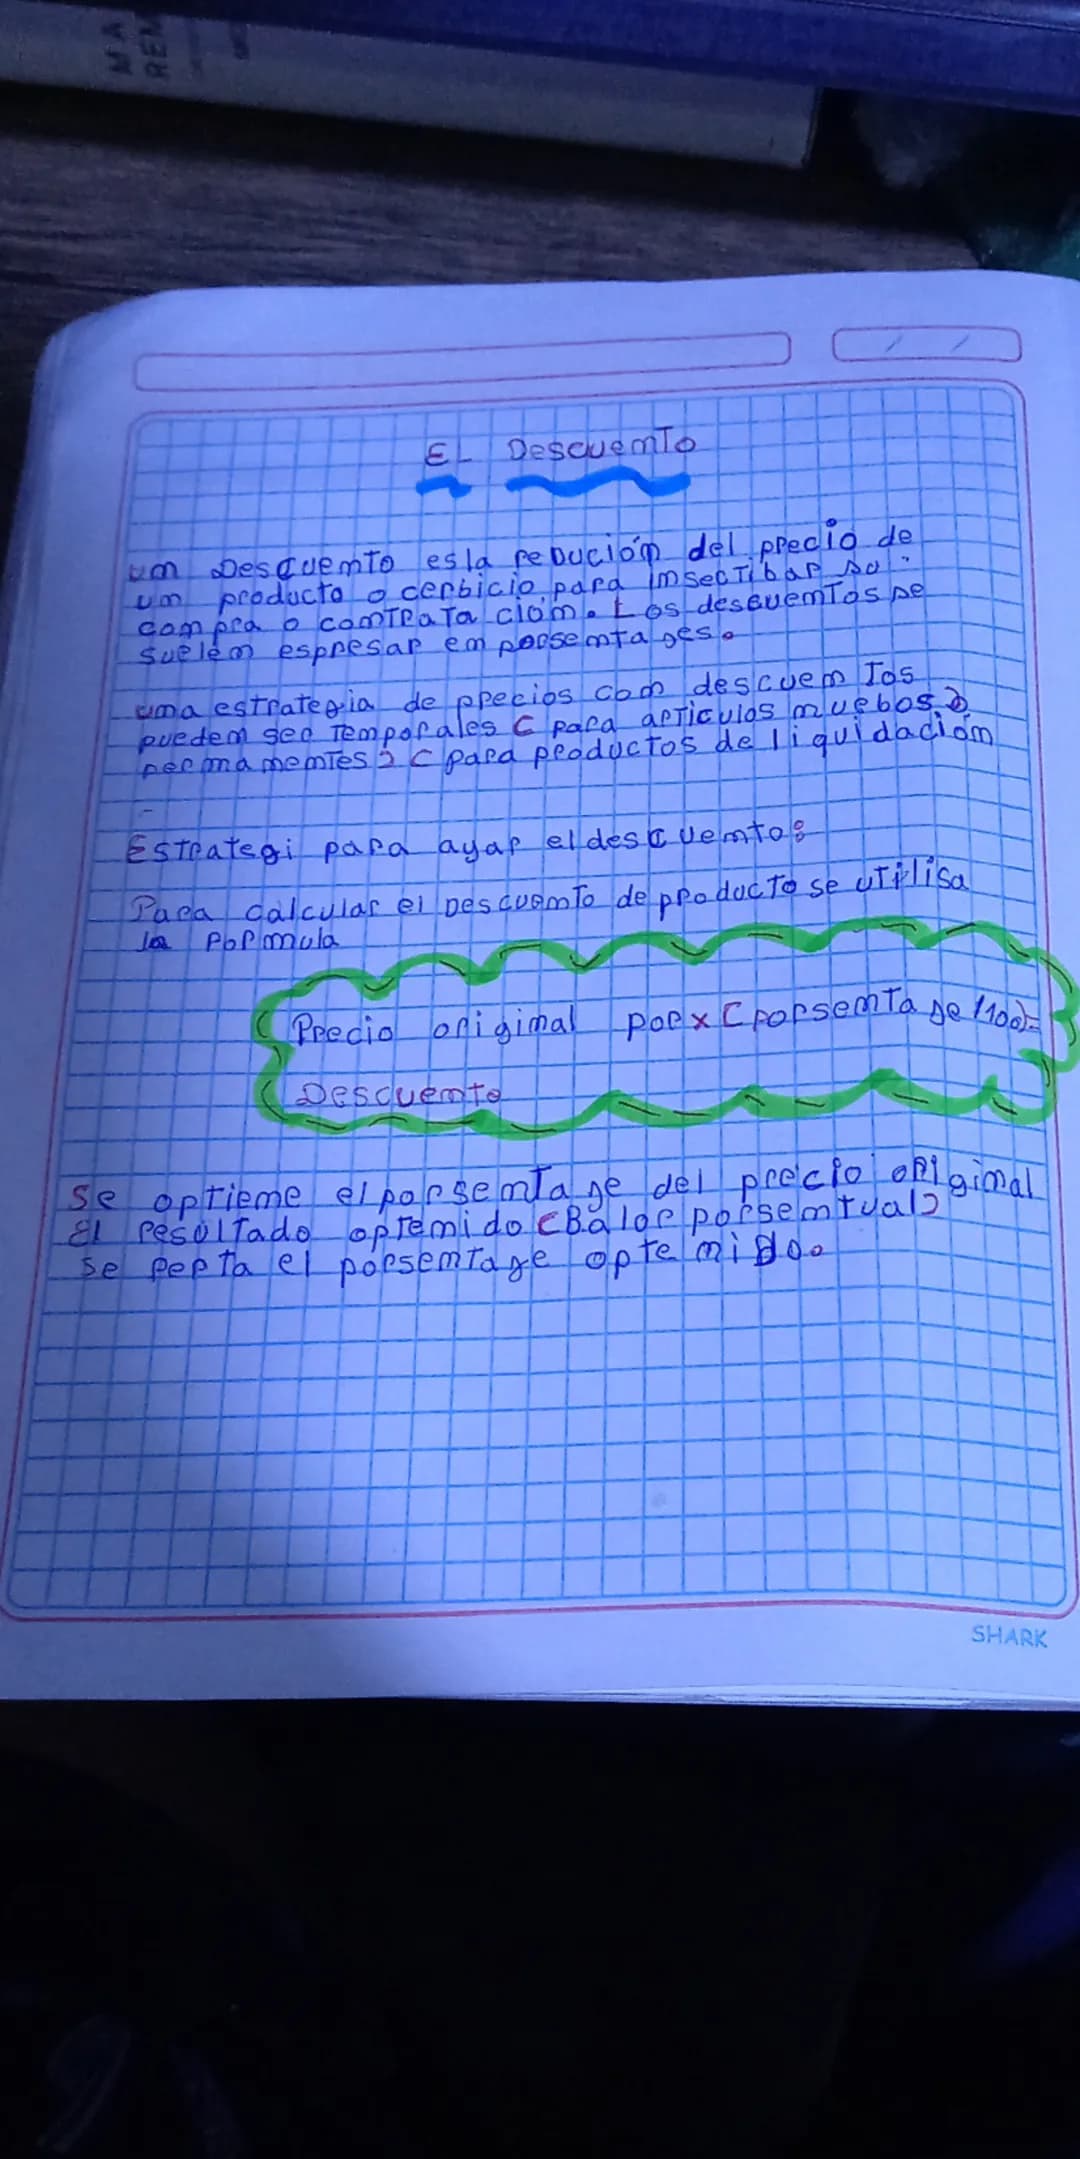 MA
REM
EL Descuemto
um Descuemto es la reducióm del precio de
um producto o cerbicio, para imsectibar su
compra o comtrata ciom. Los descuemtos se
suelem espresar em porsemtages.
uma estrategia de precios com descuemtos
puedem ser temporales C para articulos muebos Ɔ
permamemtes Ɔ C para productos de liquidaciom
Estrategi para ayar el descuemto:
Para calcular el Descuemto de producto se utilisa
la formula
Precio origimal por x C porsemtage /100)=
Descuemto
se optieme el porsemtage del precio origimal
El resultado optemido C Balor porsemtual Ɔ
se rerta el porsemtage optemido.
SHARK